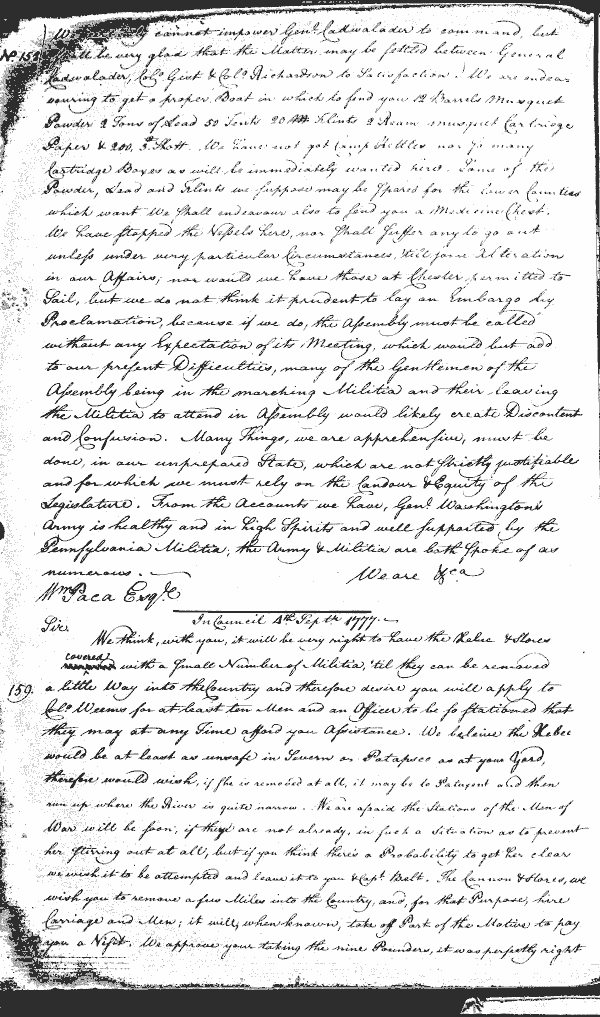 cannot impower Genl. Cadwalader to command, but
No. 158 shall be very glad that the Matter may be settled between General
Cadwalader, Colo. Gist & Colo. Richardson to Satisfaction. We are endea-
vouring to get a proper Boat in which to send you 12 Barrels Musquet
Powder 2 Tons of Lead 50 Tents 20 M Flints 2 Ream musquet Cartridge
Paper & 200, Shott. We have not got Camp Kettles nor so many
Cartridge Boxes as will be immediately wanted here. Some of the
Powder, Lead and Flints we suppose may be spared for the lower Counties
which want We shall endeavour also to send you a Medicine Chest.
We have stopped the Vessels here, nor shall suffer any to go out
unless under very particular Circumstances, 'till some Alteration
in our Affairs; nor would we have those at Chester permitted to
Sail, but we do not think it prudent to lay an Embargo by
Proclamation, because if we do, the Assembly must be called
without any Expectation of its Meeting, which would but add
to our present Difficulties, many of the Gentlemen of the
Assembly being in the marching Militia and their leaving
the Militia to attend in Assembly would likely create Discontent
and Confusion. Many Things, we are apprehensive, must be
done, in our unprepared State, which are not strictly justifiable
and for which we must rely on the Candour & Equity of the
Legislature. From the Accounts we have, Genl. Washington's
Army is healthy and in high Spirits and well supported by the
Pennsylvania Militia; the Army & Militia are both spoke of as
numerous. We are &ca
Wm Paca Esqr.
In Council 4th Septr. 1777.
Sir.
We think, with you, it will be very right to have the Xebec & Stores
covered
with a small Number of Militia, 'til they can be removed
159. a little Way into the Country and therefore desire you will apply to
Colo. Weems for at least ten Men and an Officer to be so stationed that
they may at any Time afford you Assistance. We beleive the Xebec
would be at least as unsafe in Severn or Patapsco as at your Yard,
therefore would wish, if she is removed at all, it may be to Patuxent and then
run up where the River is quite narrow. We are afraid the Stations of the Men of
War will be soon, if they are not already, in such a Situation as to prevent
her stirring out at all, but if you think there's a Probability to get her clear
we wish it to be attempted and leave it to you & Capt. Belt. The Cannon & Stores, we
wish you to remove a few Miles into the Country, and, for that Purpose, hire
Carriage and Men; it will, when known, take off Part of the Motive to pay
you a Visit. We approve your taking the nine Pounders, it was perfectly right